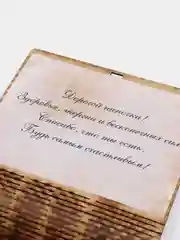 Дорогой папочка!
Здоровья, энергии и бесконечных сил
Спасибо, что ты есть.
Будь самым счастливым!